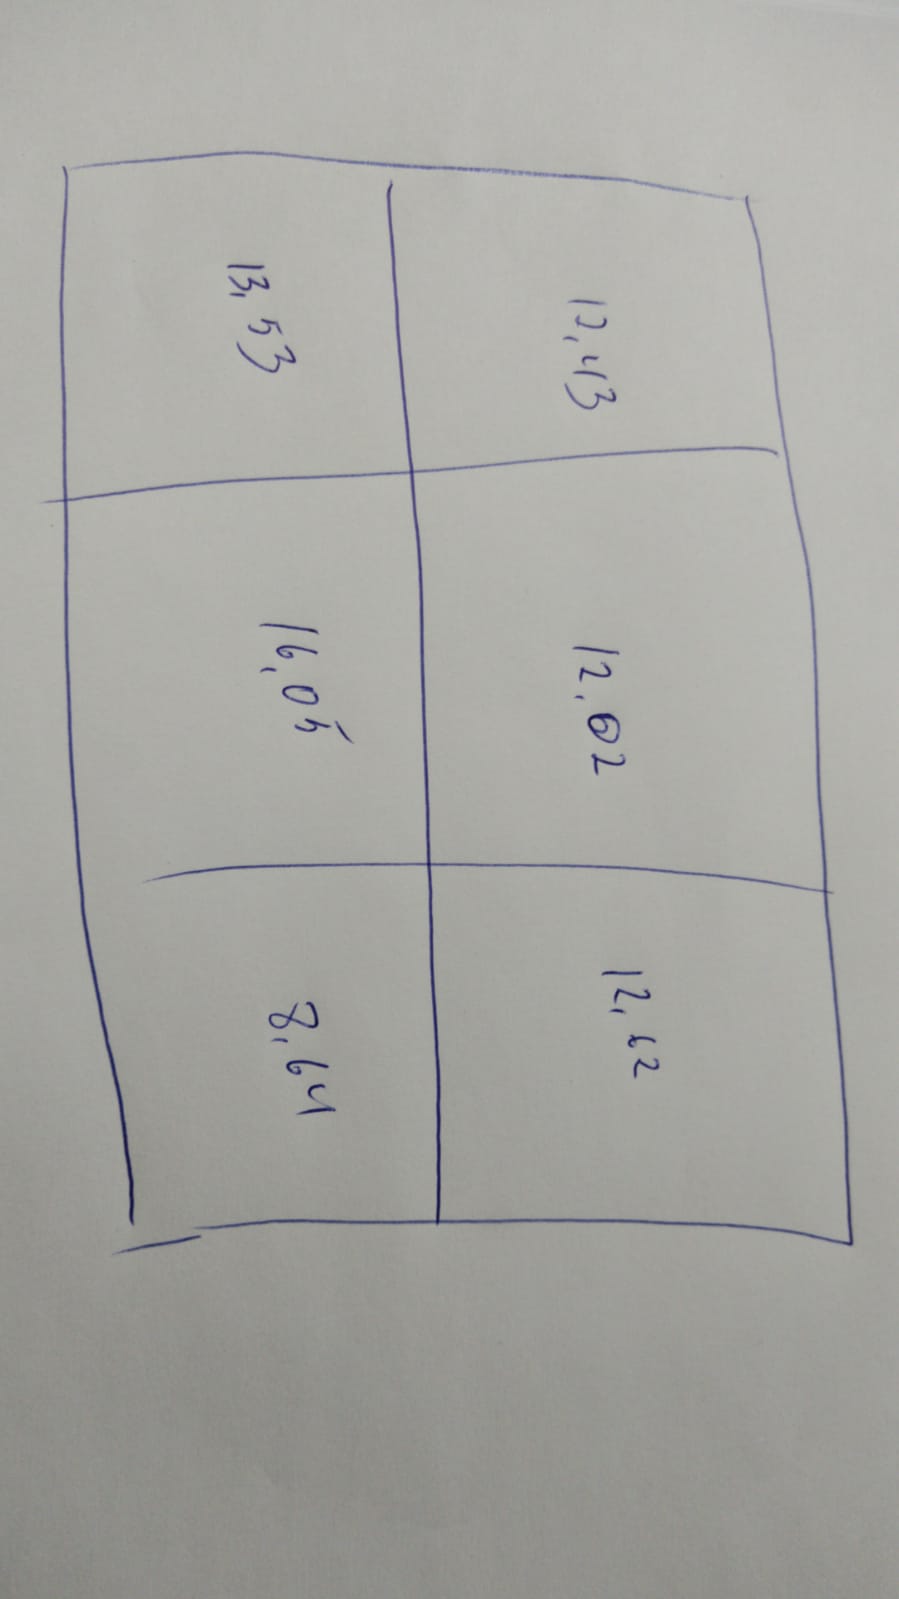 12,43 12.02 12,62
13,53 16,05 8,64